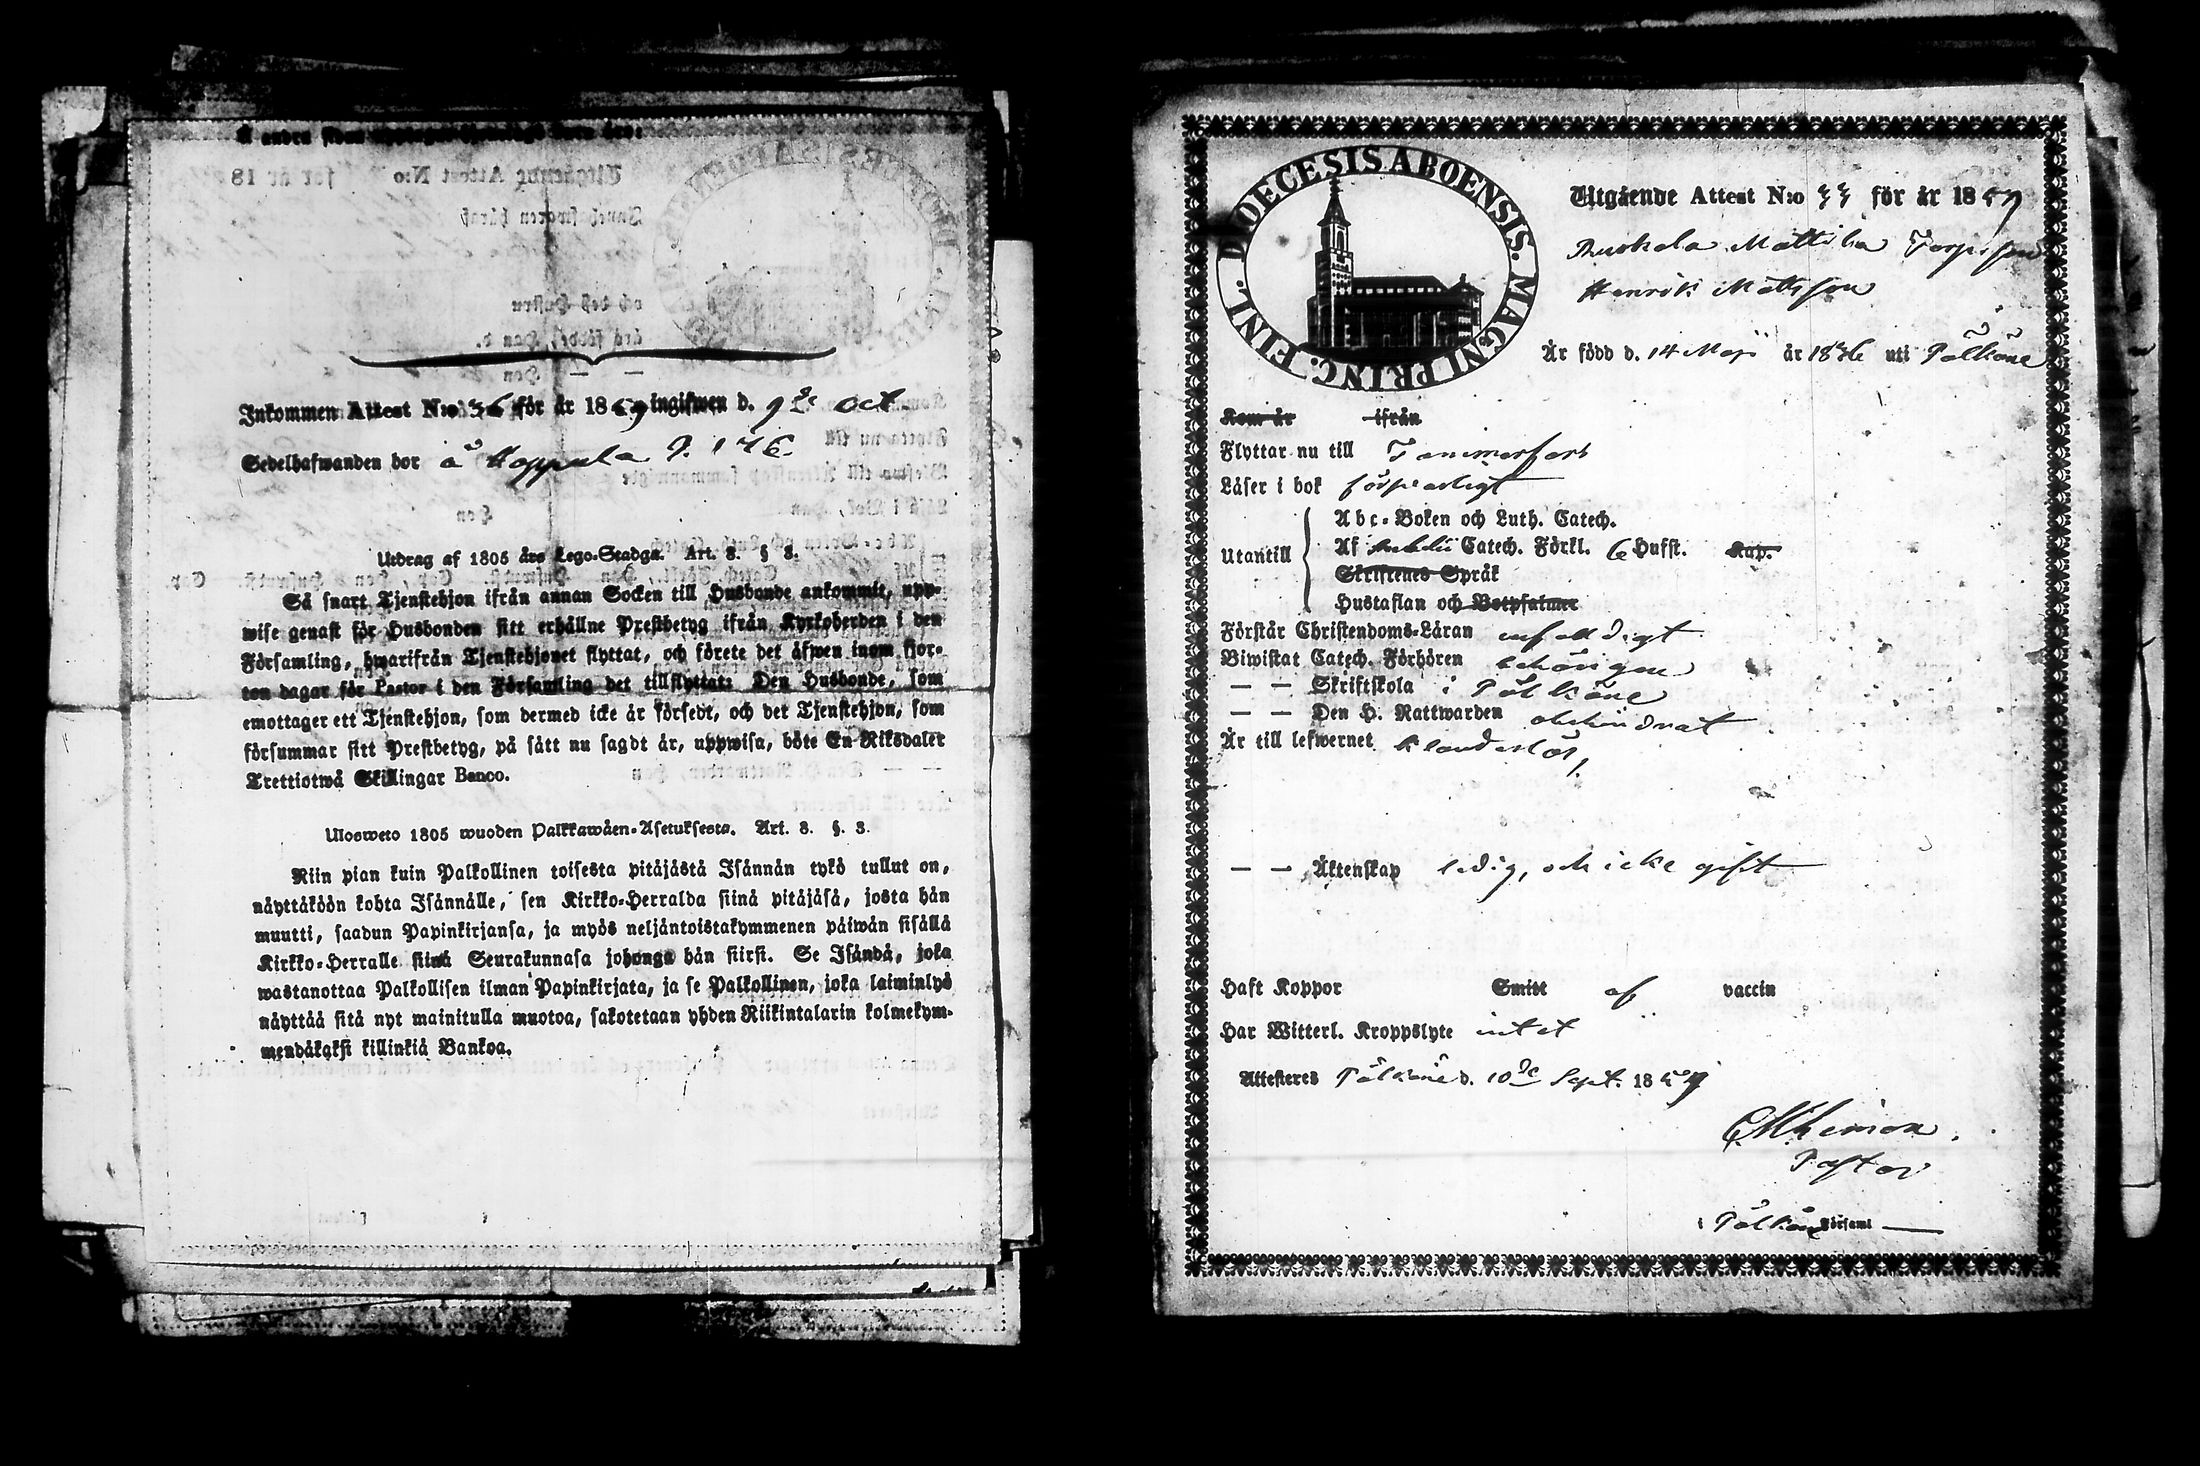 Å andra sidan
Inkommen Attest N:o 36 för år 1859 ingifwen d. 9de Oct.
Sedelhafwanden bor å Hoppula P. 176.
Utdrag af 1805 års Lego-Stadga. Art. 8. § 3.
Så snart Tjenstehjon ifrån annan Socken till Husbonde ankommit, upp-
wise genast för Husbonden sitt erhållne Prestbetyg ifrån Kyrkoherden i den
Församling, hwarifrån Tjenstehjonet flyttat, och förete det äfwen inom fjor-
ton dagar för Pastor i den Församling det tillflyttat: Den Husbonde, som
emottager ett Tjenstehjon, som dermed icke är försedt, och det Tjenstehjon, som
försummar sitt Prestbetyg, på sätt nu sagdt är, uppwisa, böte En Riksdaler
Trettiotwå Skillingar Banco.
Ulosweto 1805 wuoden Palkkawäen-Asetuksesta. Art. 8. §. 3.
Niin pian kuin Palkollinen toisesta pitäjästä Isännän tykö tullut on,
näyttäköön kohta Isännälle, sen Kirkko-Herralda siinä pitäjäsä, josta hän
muutti, saadun Papinkirjansa, ja myös neljäntoistakymmenen päiwän sisällä
Kirkko-Herralle siinä Seurakunnasa johonga hän siirsi. Se Isändä, joka
wastanottaa Palkollisen ilman Papinkirjata, ja se Palkollinen, joka laiminlyö
näyttää sitä nyt mainitulla muotoa, sakotetaan yhden Riikintalarin kolmekym-
mendäkaksi killinkiä Bankoa.
DIOECESIS ABOENSIS. MAGNI PRINC. FINL.
Utgående Attest N:o 33 för år 1859
Mattila
Henrik Mattsson
Är född d. 14 Maji år 1836 uti Pälkäne
Kom år ifrån
Flyttar nu till Tammerfors
Läser i bok försvarligt
Utantill
Abc-Boken och Luth. Catech.
Af Catech. Förkl. 6 Hufst. Kap.
Skriftenes Språk
Hustaflan och Botpsalmer
Förstår Christendoms-Läran enfaldigt
Biwistat Catech. Förhören behörigen
— — Skriftskola i Pälkäne
— — Den H. Nattwarden obehindrat
Är till lefwernet klanderlös,
— — Äktenskap ledig, och icke gift
Haft Koppor Smitt af vaccin
Har Witterl. Kroppslyte intet
Attesteras Pälkäne d. 10de Sept. 1859
Pastor
i Pälkäne Församl